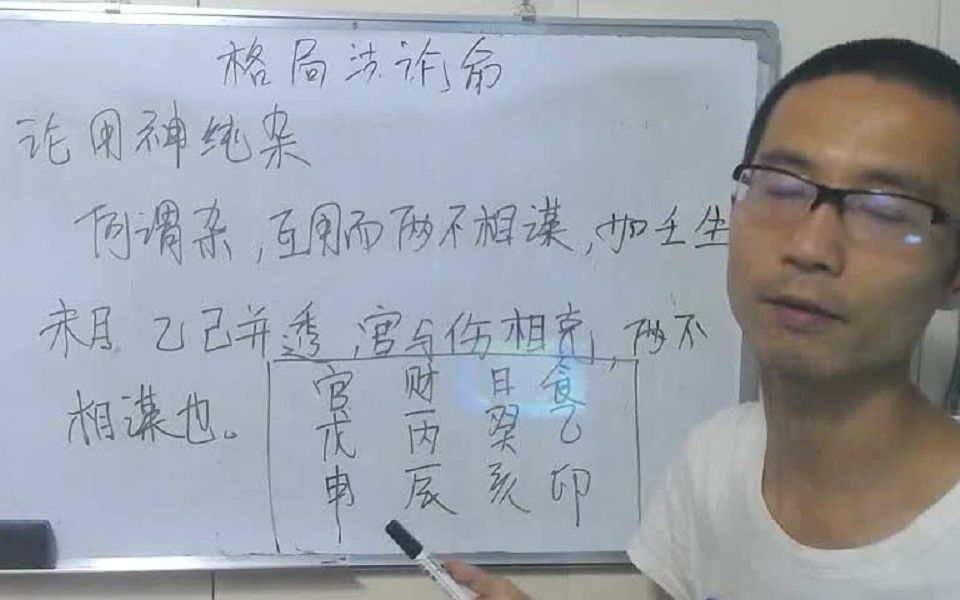 格局法论命
论用神纯杂
何谓杂,互用而两不相谋,如壬生
未月 乙己并透,官与伤相克,两不
相谋也。
官 财 日 食
戊 丙 癸 乙
申 辰 亥 卯